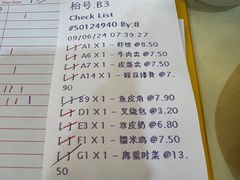 枱号:B3
Check List
#50124940 By:8
09/06/24 07:39:27
A1 X 1 - 虾饺 @8.50
A6 X 1 - 牛肉卖 @7.50
A7 X 1 - 皮蛋卖 @7.50
A14 X 1 - 排骨 @7.
90
B9 X 1 - 鱼皮角 @7.90
D1 X 1 - 叉烧包 @3.20
E3 X 1 - 双皮奶 @6.80
F1 X 1 - 糯米鸡 @7.50
G1 X 1 - 海蜇时菜 @13.
50